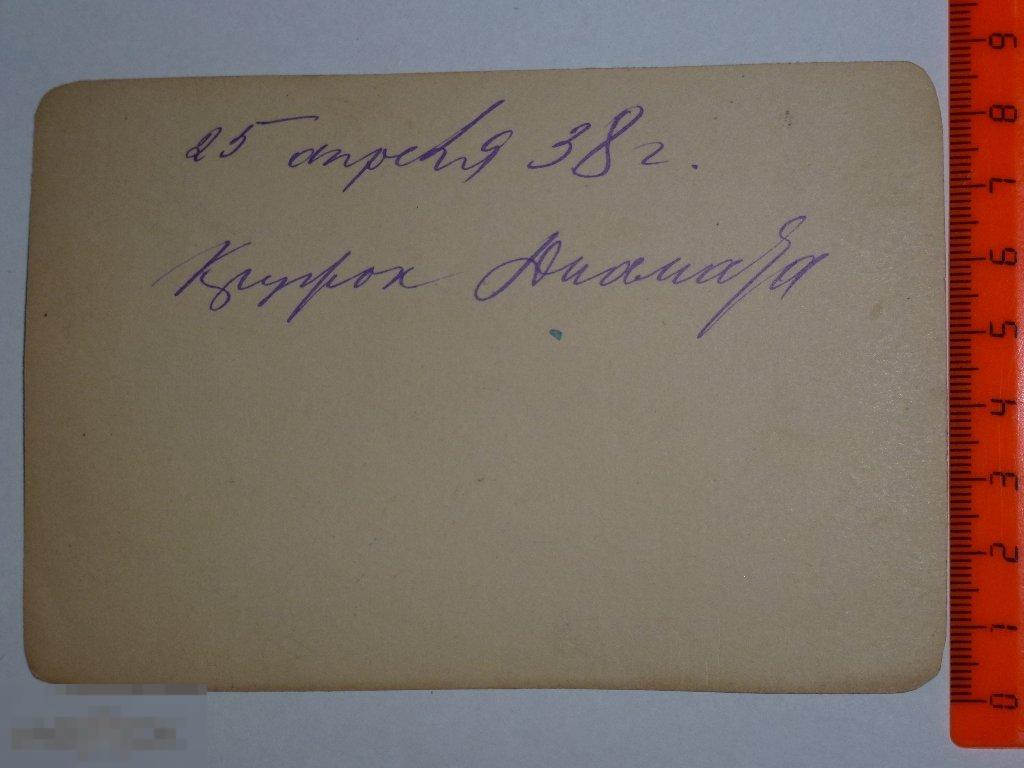 25 апреля 38 г.
Кружок Диамата
0 1 2 3 4 5 6 7 8 9